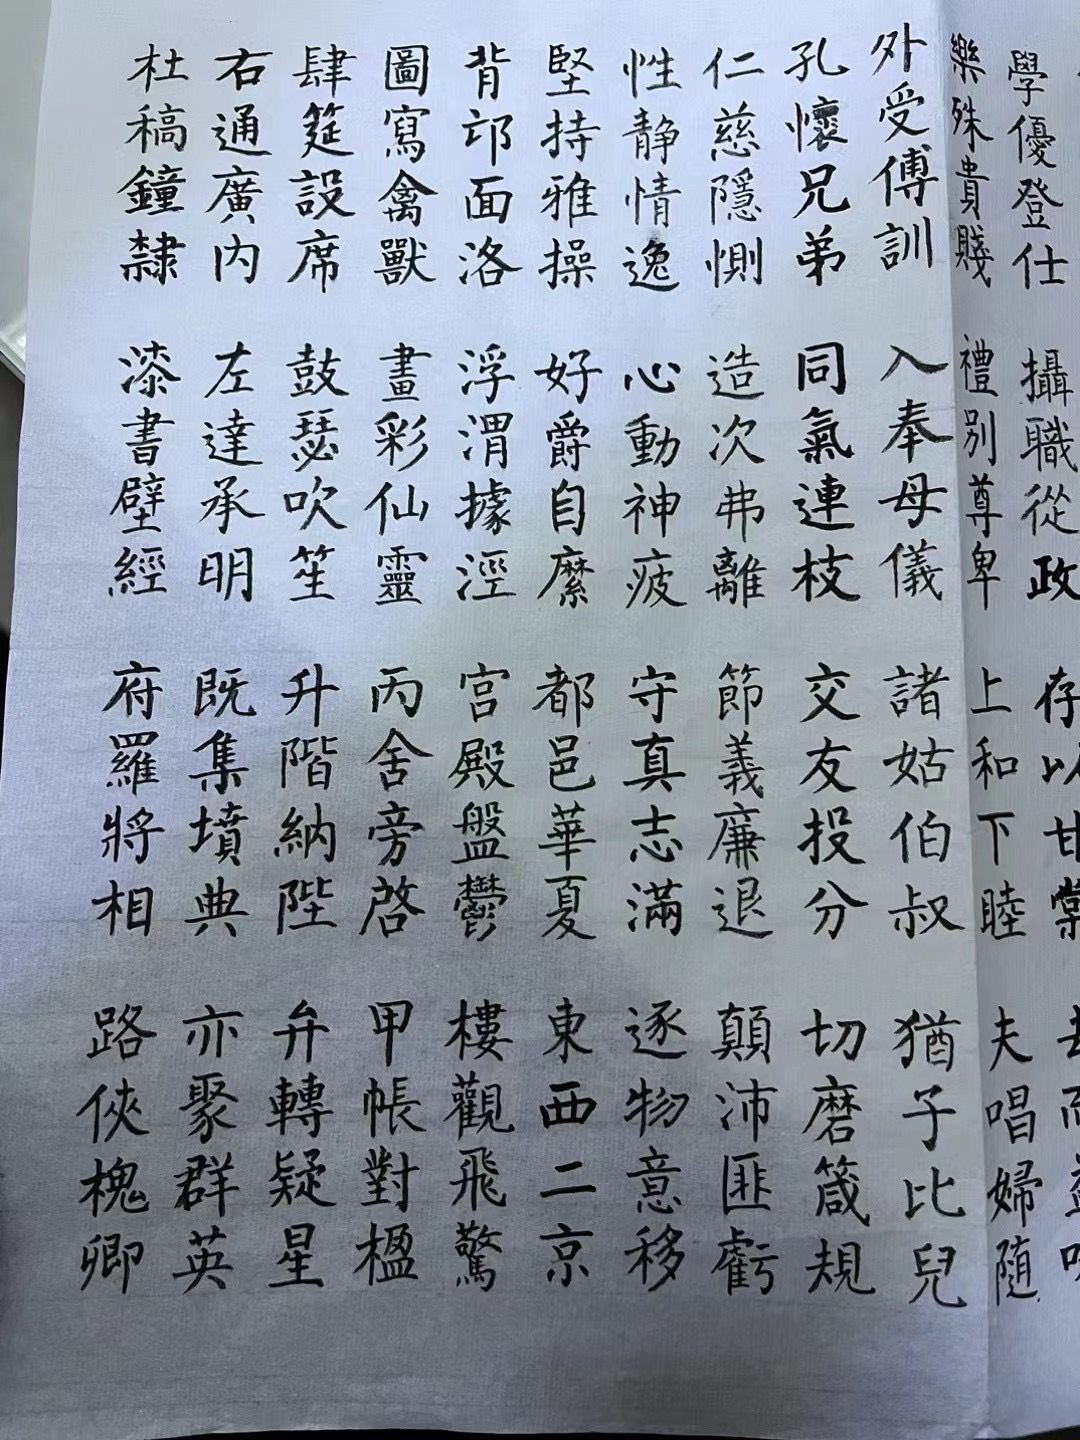 學優登仕 攝職從政 存以甘棠 去而益
樂殊貴賤 禮別尊卑 上和下睦 夫唱婦隨
外受傅訓 入奉母儀 諸姑伯叔 猶子比兒
孔懷兄弟 同氣連枝 交友投分 切磨箴規
仁慈隱惻 造次弗離 節義廉退 顛沛匪虧
性静情逸 心動神疲 守真志滿 逐物意移
堅持雅操 好爵自縻 都邑華夏 東西二京
背邙面洛 浮渭據涇 宮殿盤鬱 樓觀飛驚
圖寫禽獸 畫彩仙靈 丙舍旁啓 甲帳對楹
肆筵設席 鼓瑟吹笙 升階納陛 弁轉疑星
右通廣内 左達承明 既集墳典 亦聚群英
杜稿鐘隸 漆書壁經 府羅將相 路俠槐卿